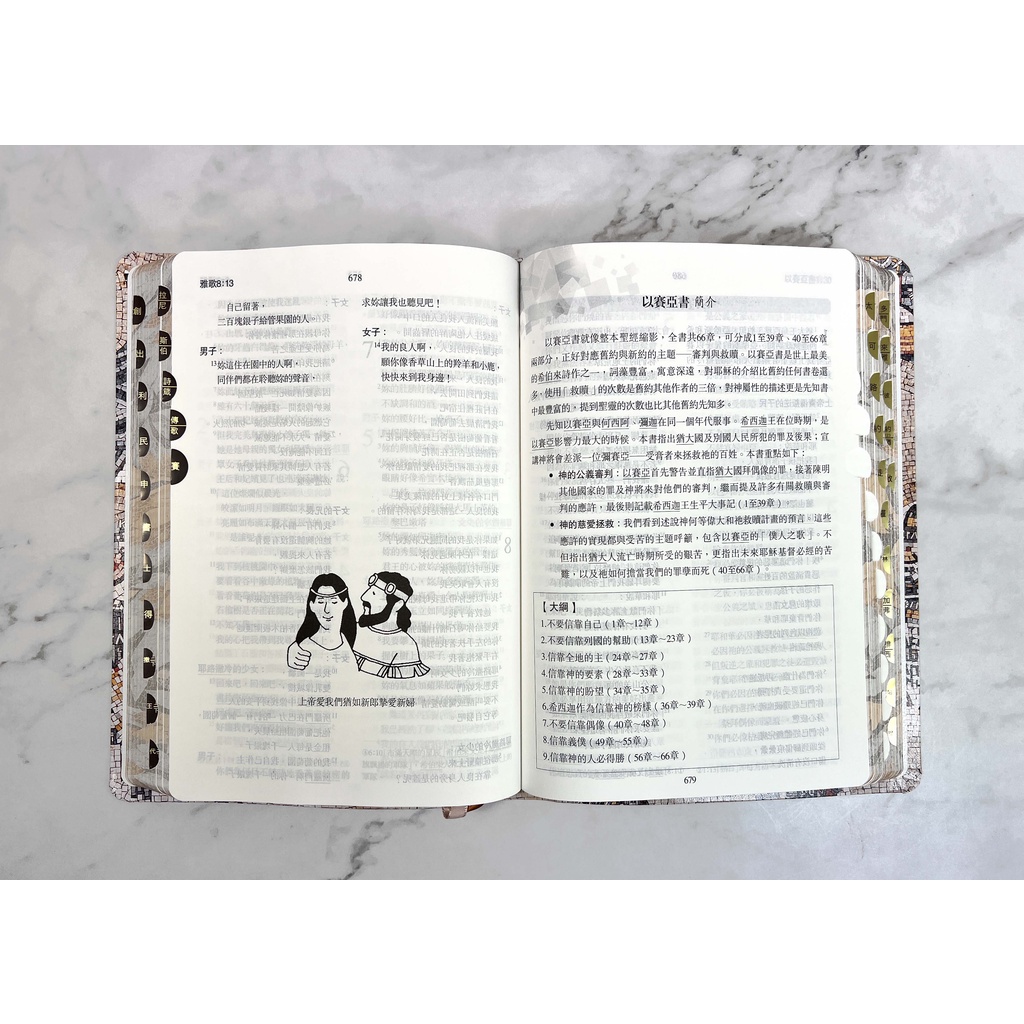 雅歌8:13
678
自己留著，
二百塊銀子給管果園的人。
男子：
13妳這住在園中的人啊，
同伴們都在聆聽妳的聲音，
求妳讓我也聽見吧！
女子：
14我的良人啊，
願你像香草山上的羚羊和小鹿，
快快來到我身邊！
上帝愛我們猶如新郎摯愛新婦
創
出
利
民
申
書
士
得
拉尼
斯伯
詩箴
傳歌
賽
以賽亞書 簡介
以賽亞書就像整本聖經縮影，全書共66章，可分成1至39章、40至66章
兩部分，正好對應舊約與新約的主題——審判與救贖。以賽亞書是世上最美
的希伯來詩作之一，詞藻豐富，寓意深遠，對耶穌的介紹比舊約任何書卷還
多，使用「救贖」的次數是舊約其他作者的三倍，對神屬性的描述更是先知書
中最豐富的，提到聖靈的次數也比其他舊約先知多。
先知以賽亞與何西阿、彌迦在同一個年代服事。希西迦王在位時期，是
以賽亞影響力最大的時候。本書指出猶大國及列國人民所犯的罪及後果；宣
講神將會差派一位彌賽亞——受膏者來拯救祂的百姓。本書重點如下：
• 神的公義審判：以賽亞首先警告並直指猶大國拜偶像的罪，接著陳明
其他國家的罪及神將來對他們的審判，繼而提及許多有關救贖與審
判的應許，最後則記載希西迦王生平大事記（1至39章）
• 神的慈愛拯救：我們看到述說神何等偉大和祂救贖計畫的預言。這些
應許的實現都與受苦的主題呼籲，包含以賽亞的「僕人之歌」。不
但指出猶大人流亡時期所受的艱苦，更指出未來耶穌基督必經的苦
難，以及祂如何擔當我們的罪孽而死（40至66章）。
【大綱】
1.不要信靠自己（1章～12章）
2.不要信靠列國的幫助（13章～23章）
3.信靠全地的主（24章～27章）
4.信靠神的要素（28章～33章）
5.信靠神的盼望（34章～35章）
6.希西迦作為信靠神的榜樣（36章～39章）
7.不要信靠偶像（40章～48章）
8.信靠義僕（49章～55章）
9.信靠神的人必得勝（56章～66章）
679